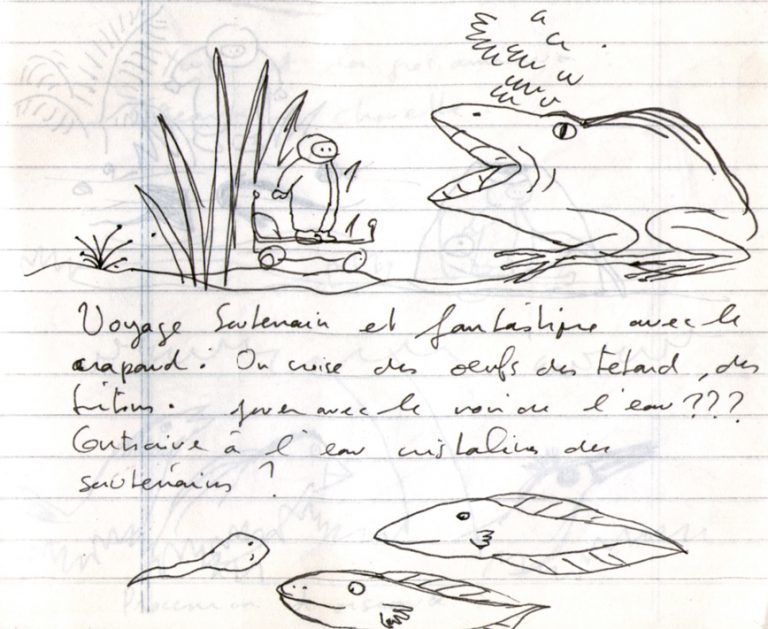 Voyage Souterrain et fantastique avec le
crapaud : On croise des oeufs des tétard, des
tritons. jouer avec le noir de l'eau ???
Contraire à l'eau cristaline des
souterrains ?